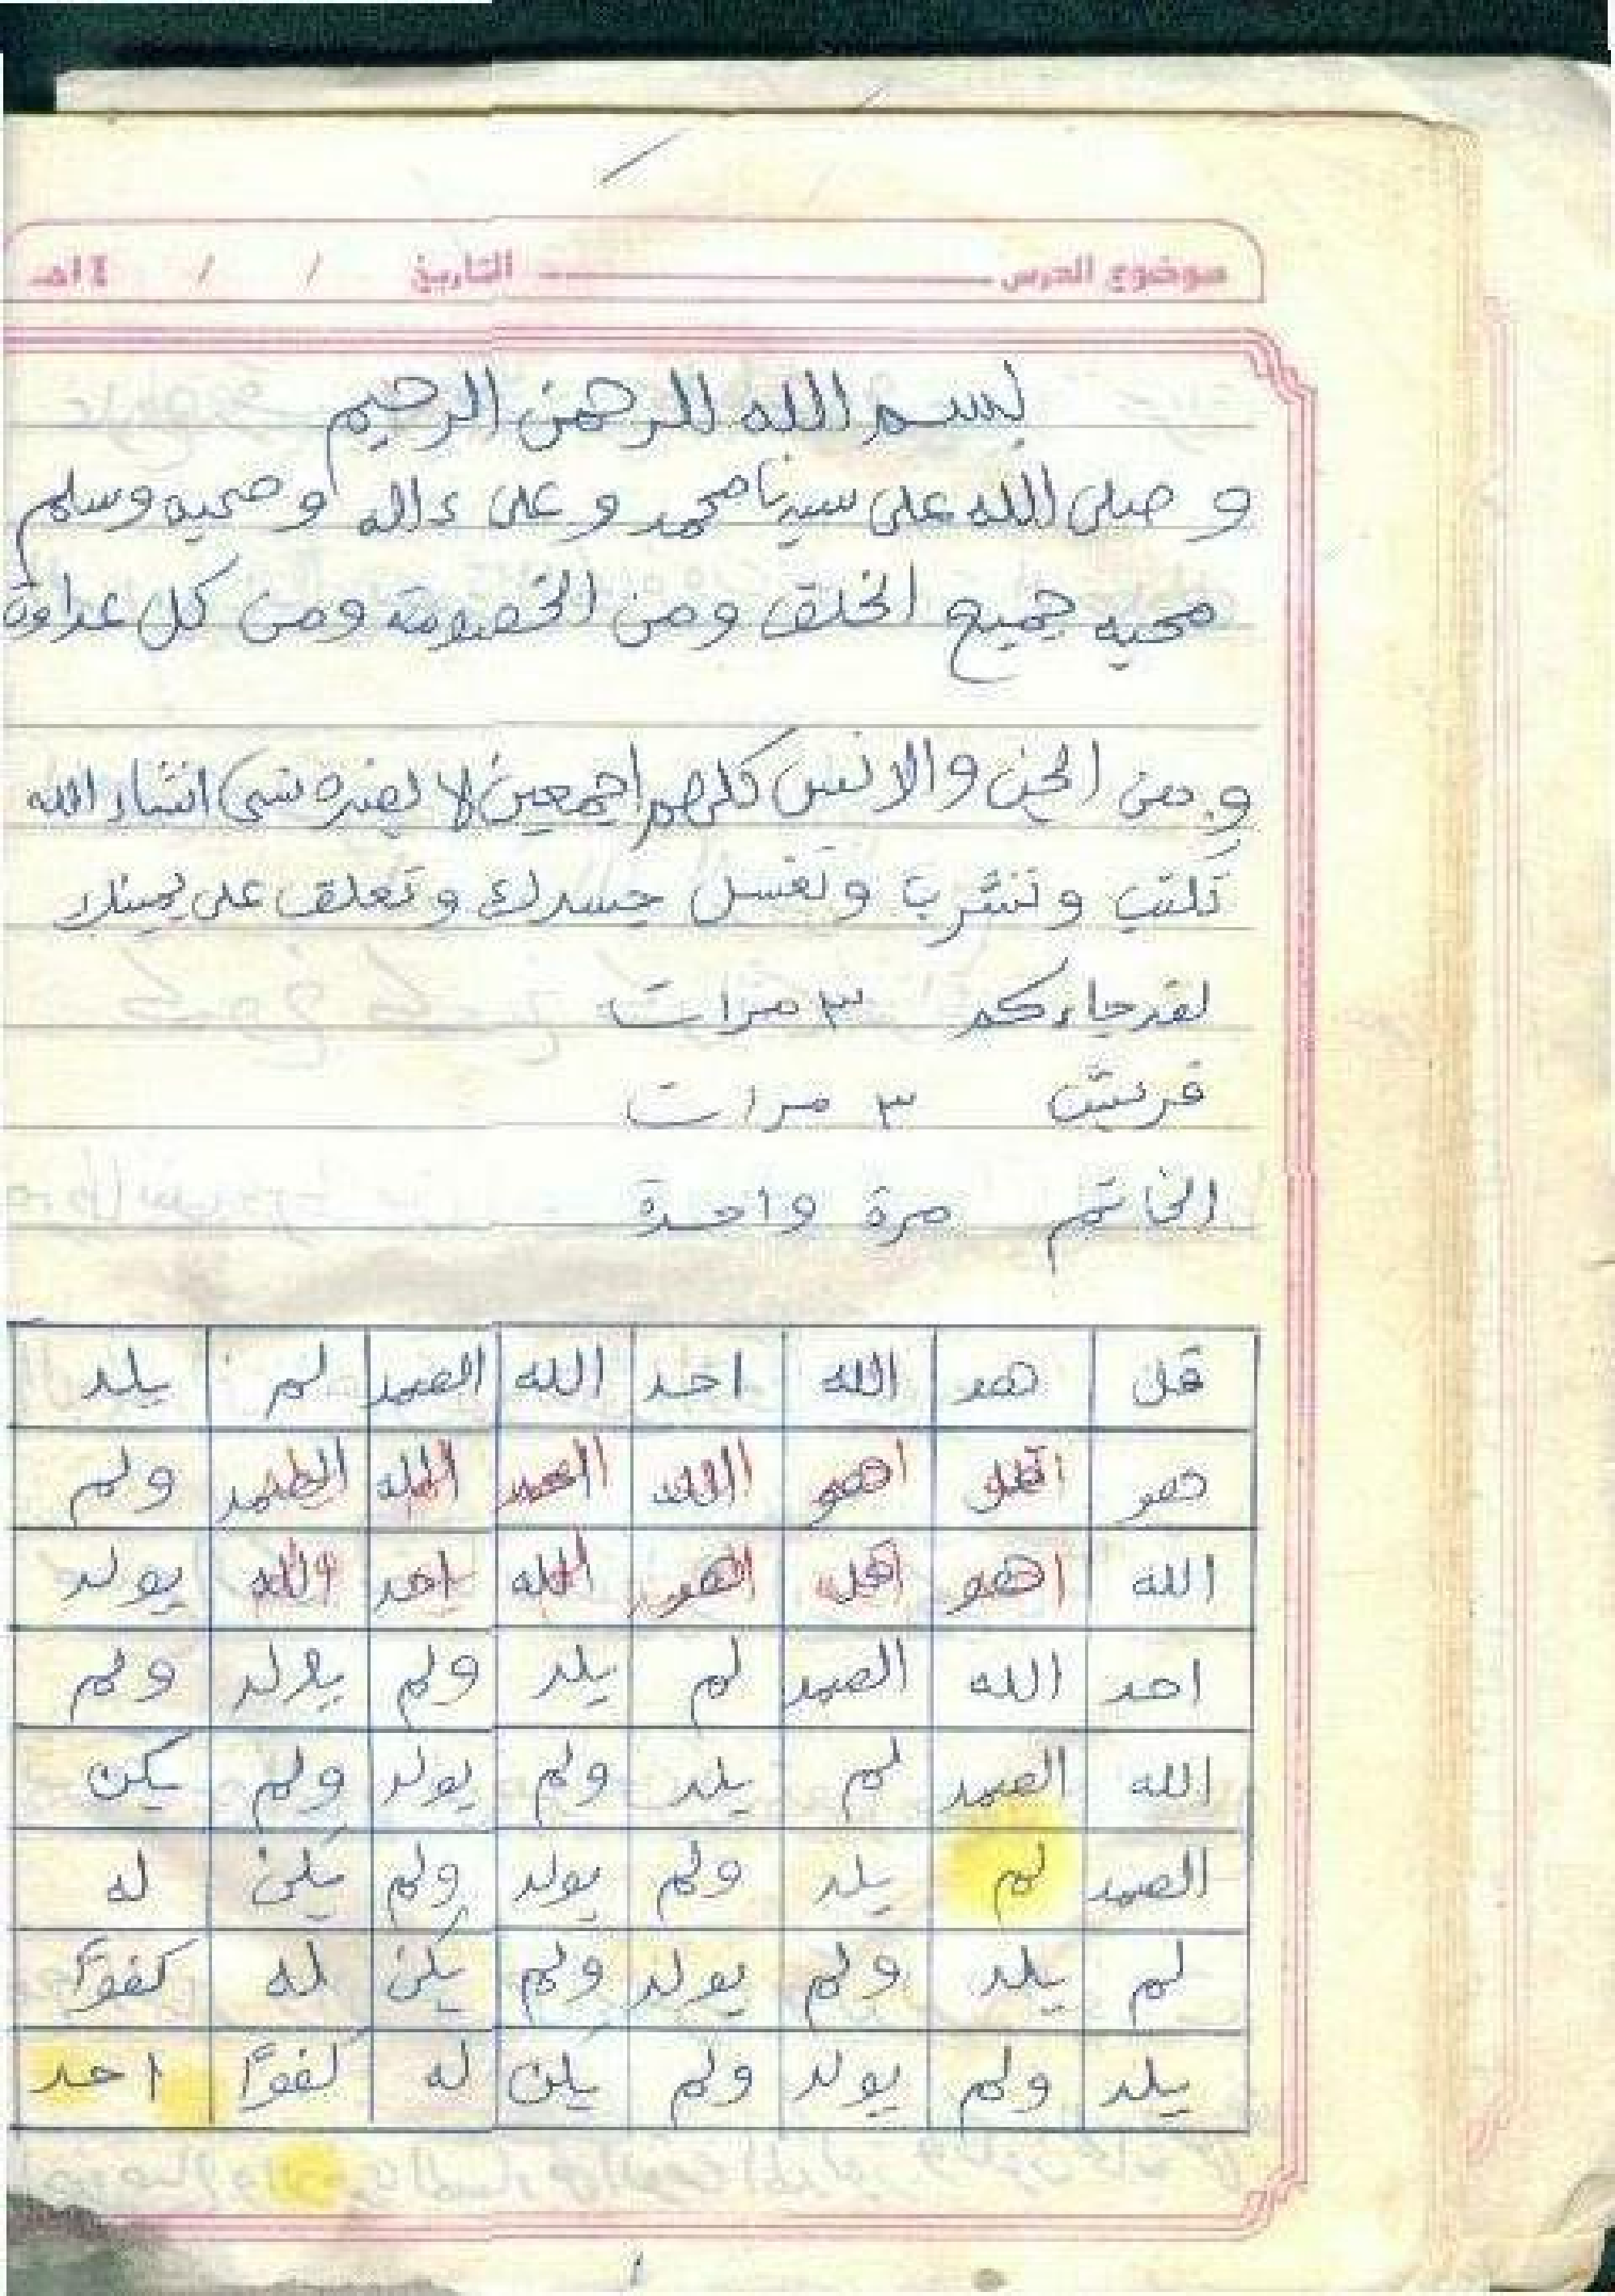 موضوع الدرس ــــــــ التاريخ / / ١٤هـ
بسم الله الرحمن الرحيم
و صلى الله على سيدنا محمد و على ءاله و صحبه وسلم
محبه جميع الخلق ومن الخصومة ومن كل عداوة
و من الجن والانس كلهم اجمعين لا يضره شى انشاء الله
تكتب وتشرب وتغسل جسدك وتعلق على يمينك
لقد جاءكم ٣ مرات
قريش ٣ مرات
الخاتم مرة واحدة
قل هو الله احد الله الصمد لم يلد
هو اهو الله ولم
الله اهو الله احد الله يولد
احد الله الصمد لم يلد ولم يولد ولم
الله الصمد لم يلد ولم يولد ولم يكن
الصمد لم يلد ولم يولد ولم يكن له
لم يلد ولم يولد ولم يكن له كفوًا
يلد ولم يولد ولم يكن له كفوًا احد